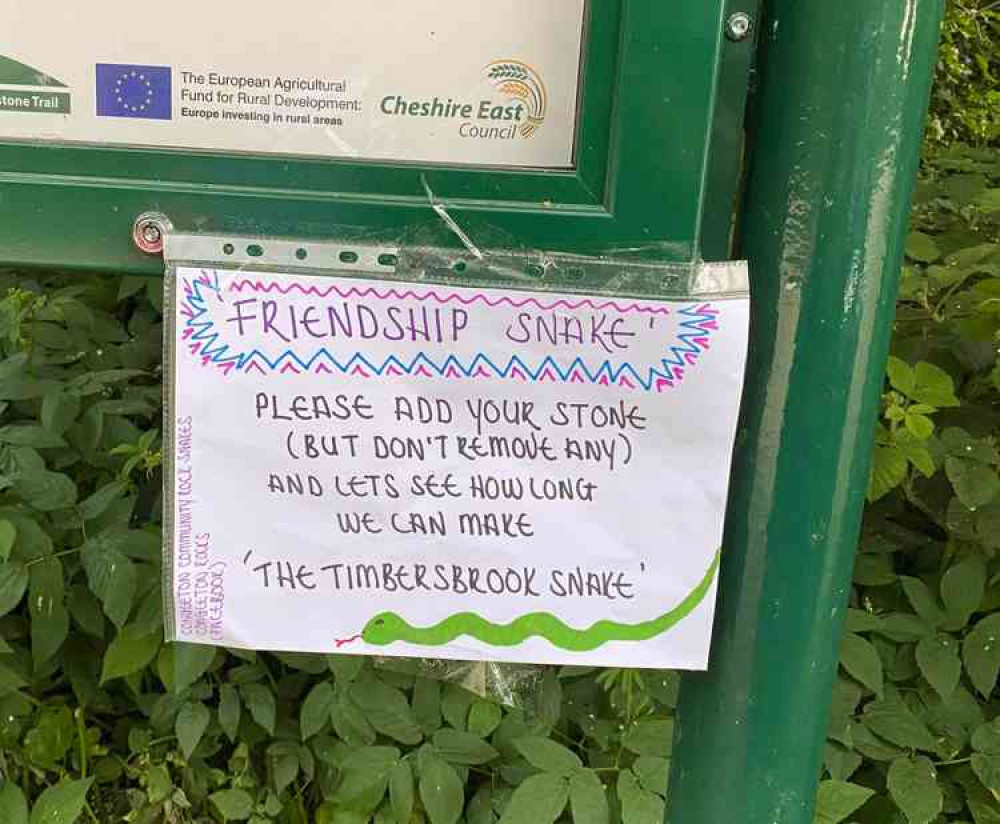 stone Trail
The European Agricultural
Fund for Rural Development:
Europe investing in rural areas
Cheshire East
Council
'FRIENDSHIP SNAKE'
PLEASE ADD YOUR STONE
(BUT DON'T REMOVE ANY)
AND LETS SEE HOW LONG
WE CAN MAKE
'THE TIMBERSBROOK SNAKE'
CONGLETON COMMUNITY ROCK SNAKES
CONGLETON ROCKS
(FACEBOOK)